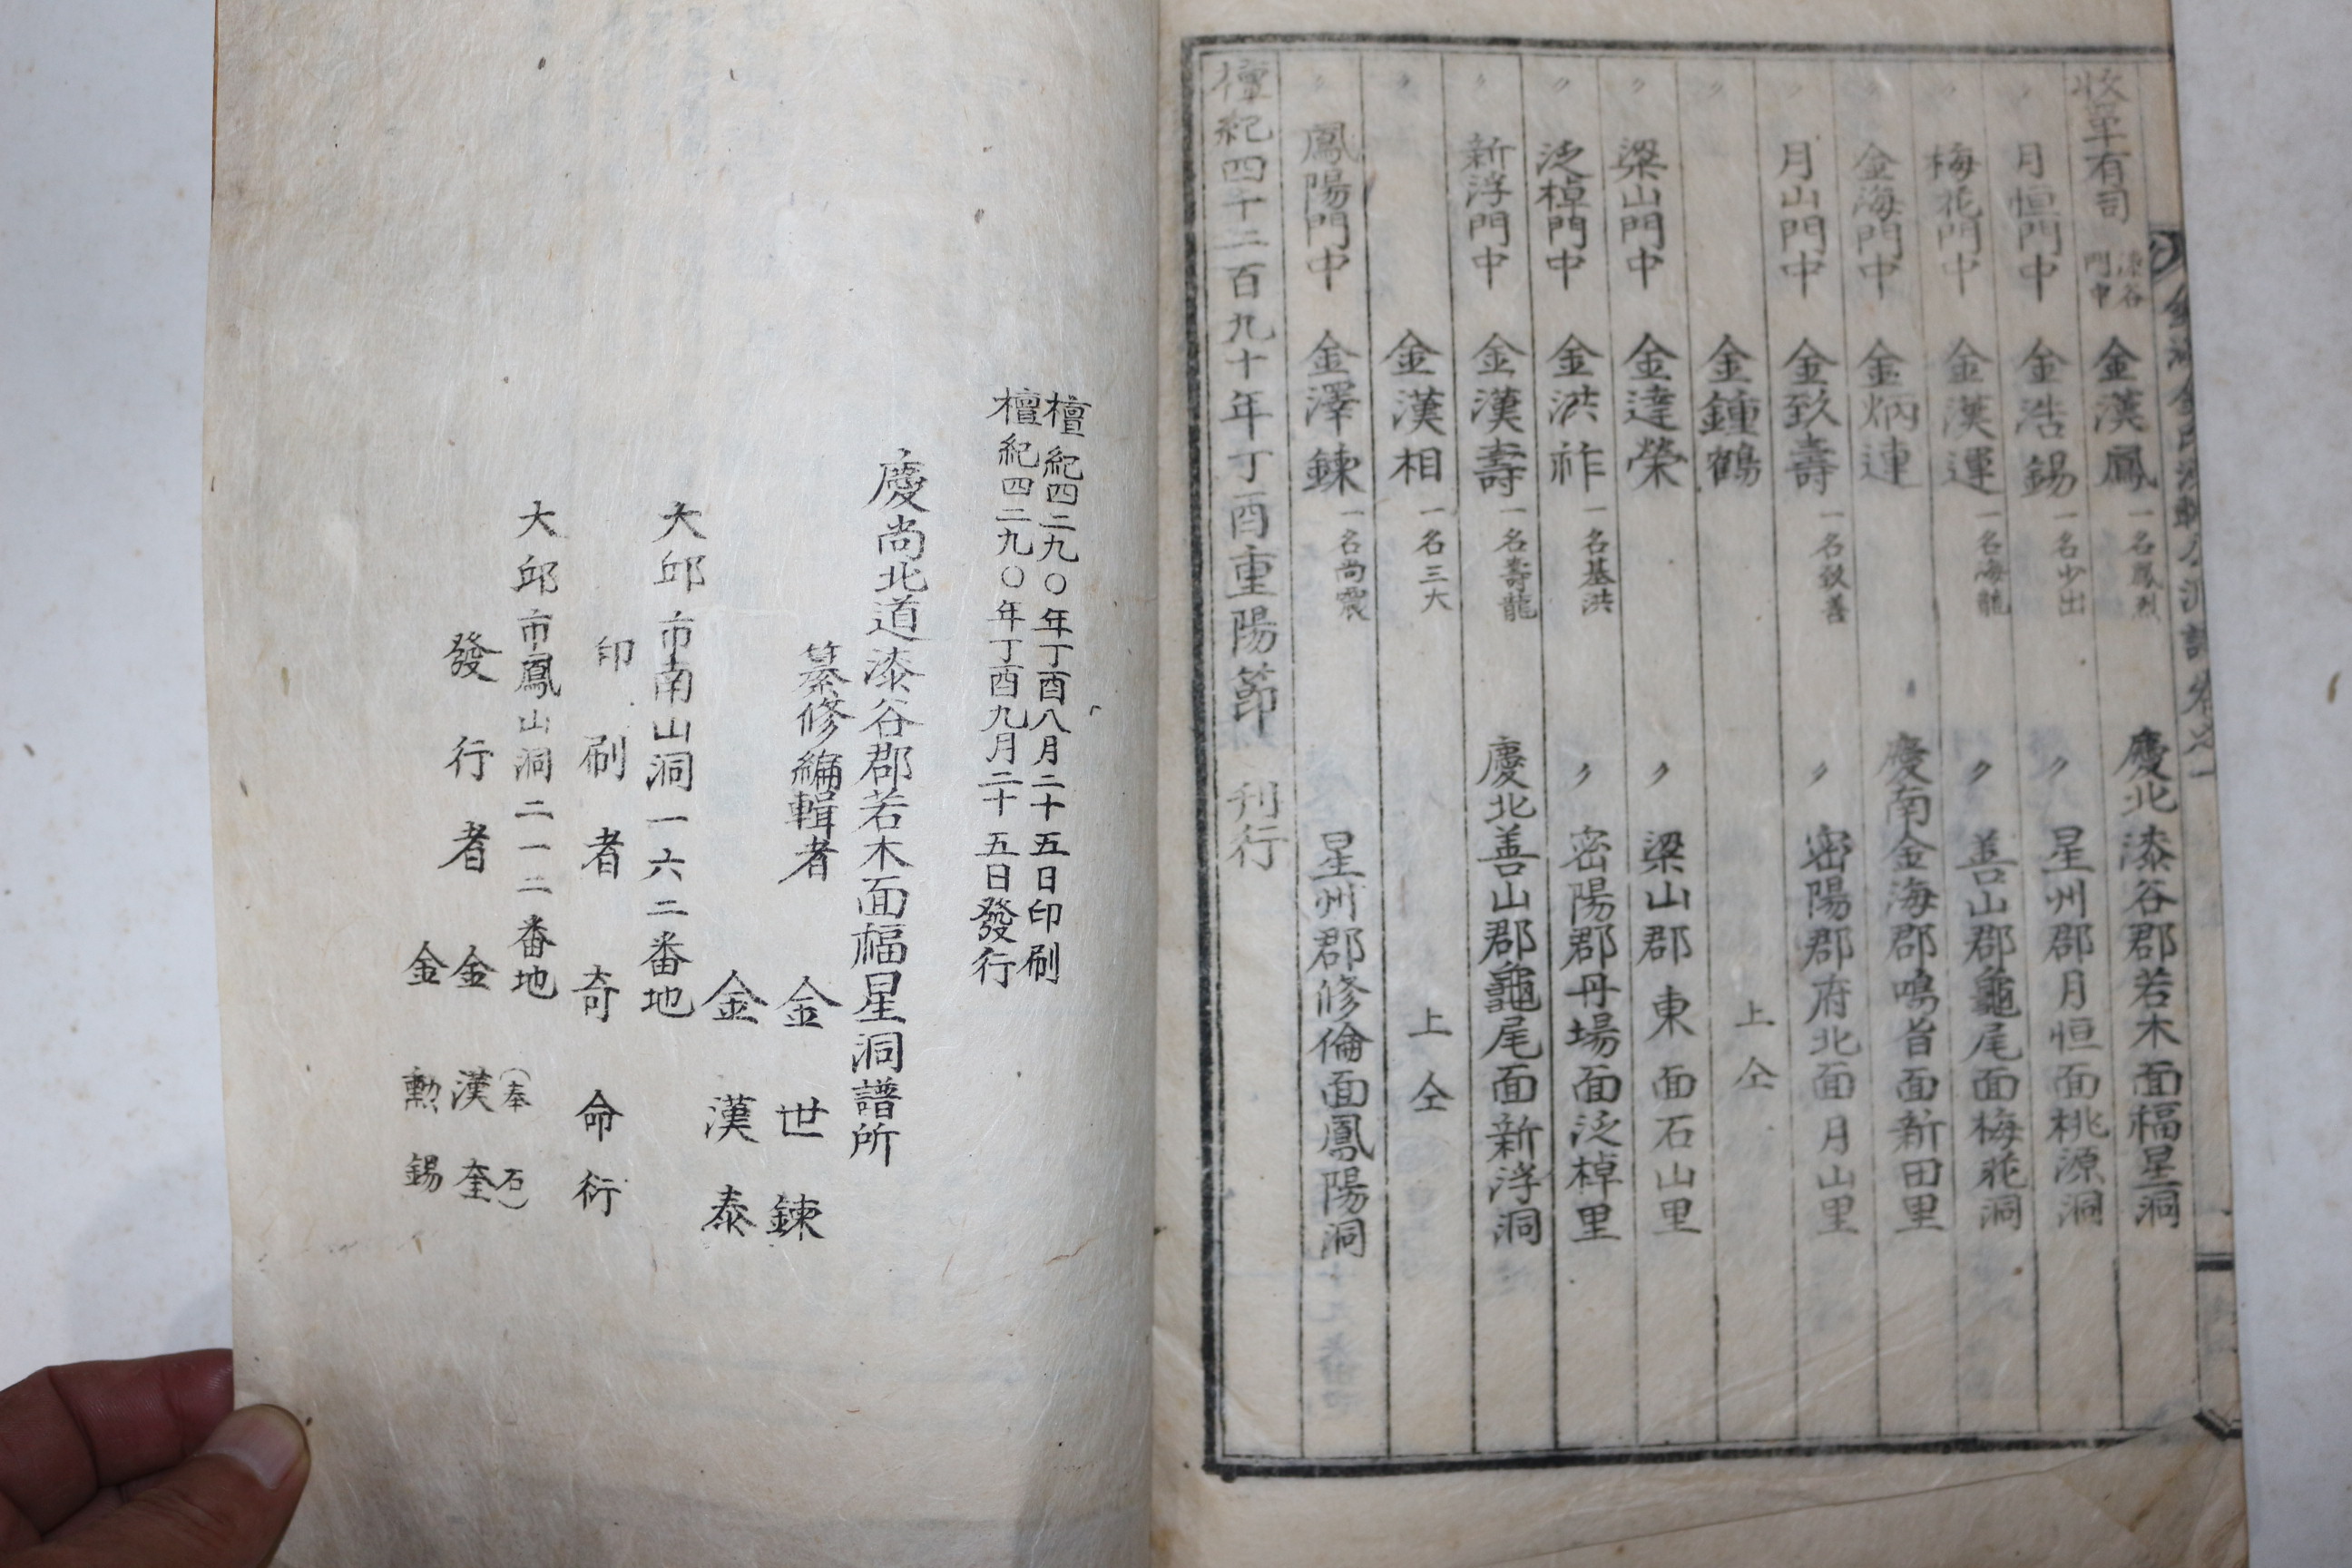 收單有司 漆谷門中 金漢鳳 一名鳳烈 慶北漆谷郡若木面福星洞
〃 月恒門中 金浩錫 一名少出 〃 星州郡月恒面桃源洞
〃 梅花門中 金漢運 一名海龍 〃 善山郡龜尾面梅花洞
〃 金海門中 金炳連 慶南金海郡鳴旨面新田里
〃 月山門中 金致壽 一名致善 〃 密陽郡府北面月山里
〃 金鍾鶴 上仝
〃 梁山門中 金達榮 〃 梁山郡東面石山里
〃 泛棹門中 金洪祚 一名基洪 〃 密陽郡丹場面泛棹里
〃 新浮門中 金漢壽 一名壽龍 慶北善山郡龜尾面新浮洞
〃 金漢相 一名三大 上仝
〃 鳳陽門中 金澤鍊 一名尚震 星州郡修倫面鳳陽洞
檀紀四千二百九十年丁酉重陽節 刊行
檀紀四二九〇年丁酉八月二十五日印刷
檀紀四二九〇年丁酉九月二十五日發行
慶尚北道漆谷郡若木面福星洞譜所
纂修編輯者 金世鍊
金漢泰
大邱市南山洞一六二番地
印刷者 奇命衍
大邱市鳳山洞二一二番地
發行者 金漢奎 (奉石)
金勲錫